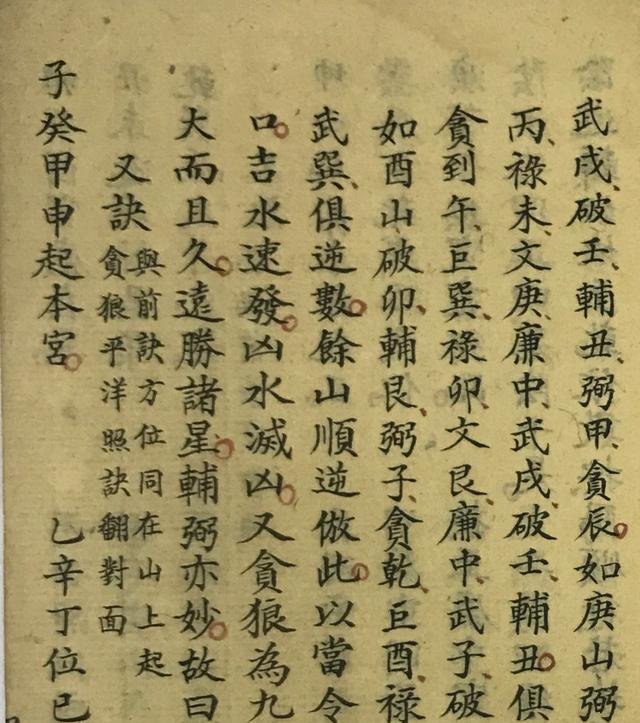 武戌破壬輔丑弼甲貪辰如庚山弼
丙祿未文庚廉中武戌破壬輔丑俱
貪到午巨巽祿卯文艮廉中武子破
如酉山破卯輔艮弼子貪乾巨酉祿
武巽俱逆數餘山順逆倣此以當令
口吉水速發凶水滅凶又貪狼為九
大而且久遠勝諸星輔弼亦妙故曰
又訣
與前訣方位同在山上起
貪狼平洋照訣翻對面
子癸甲申起本宮 乙辛丁位巳